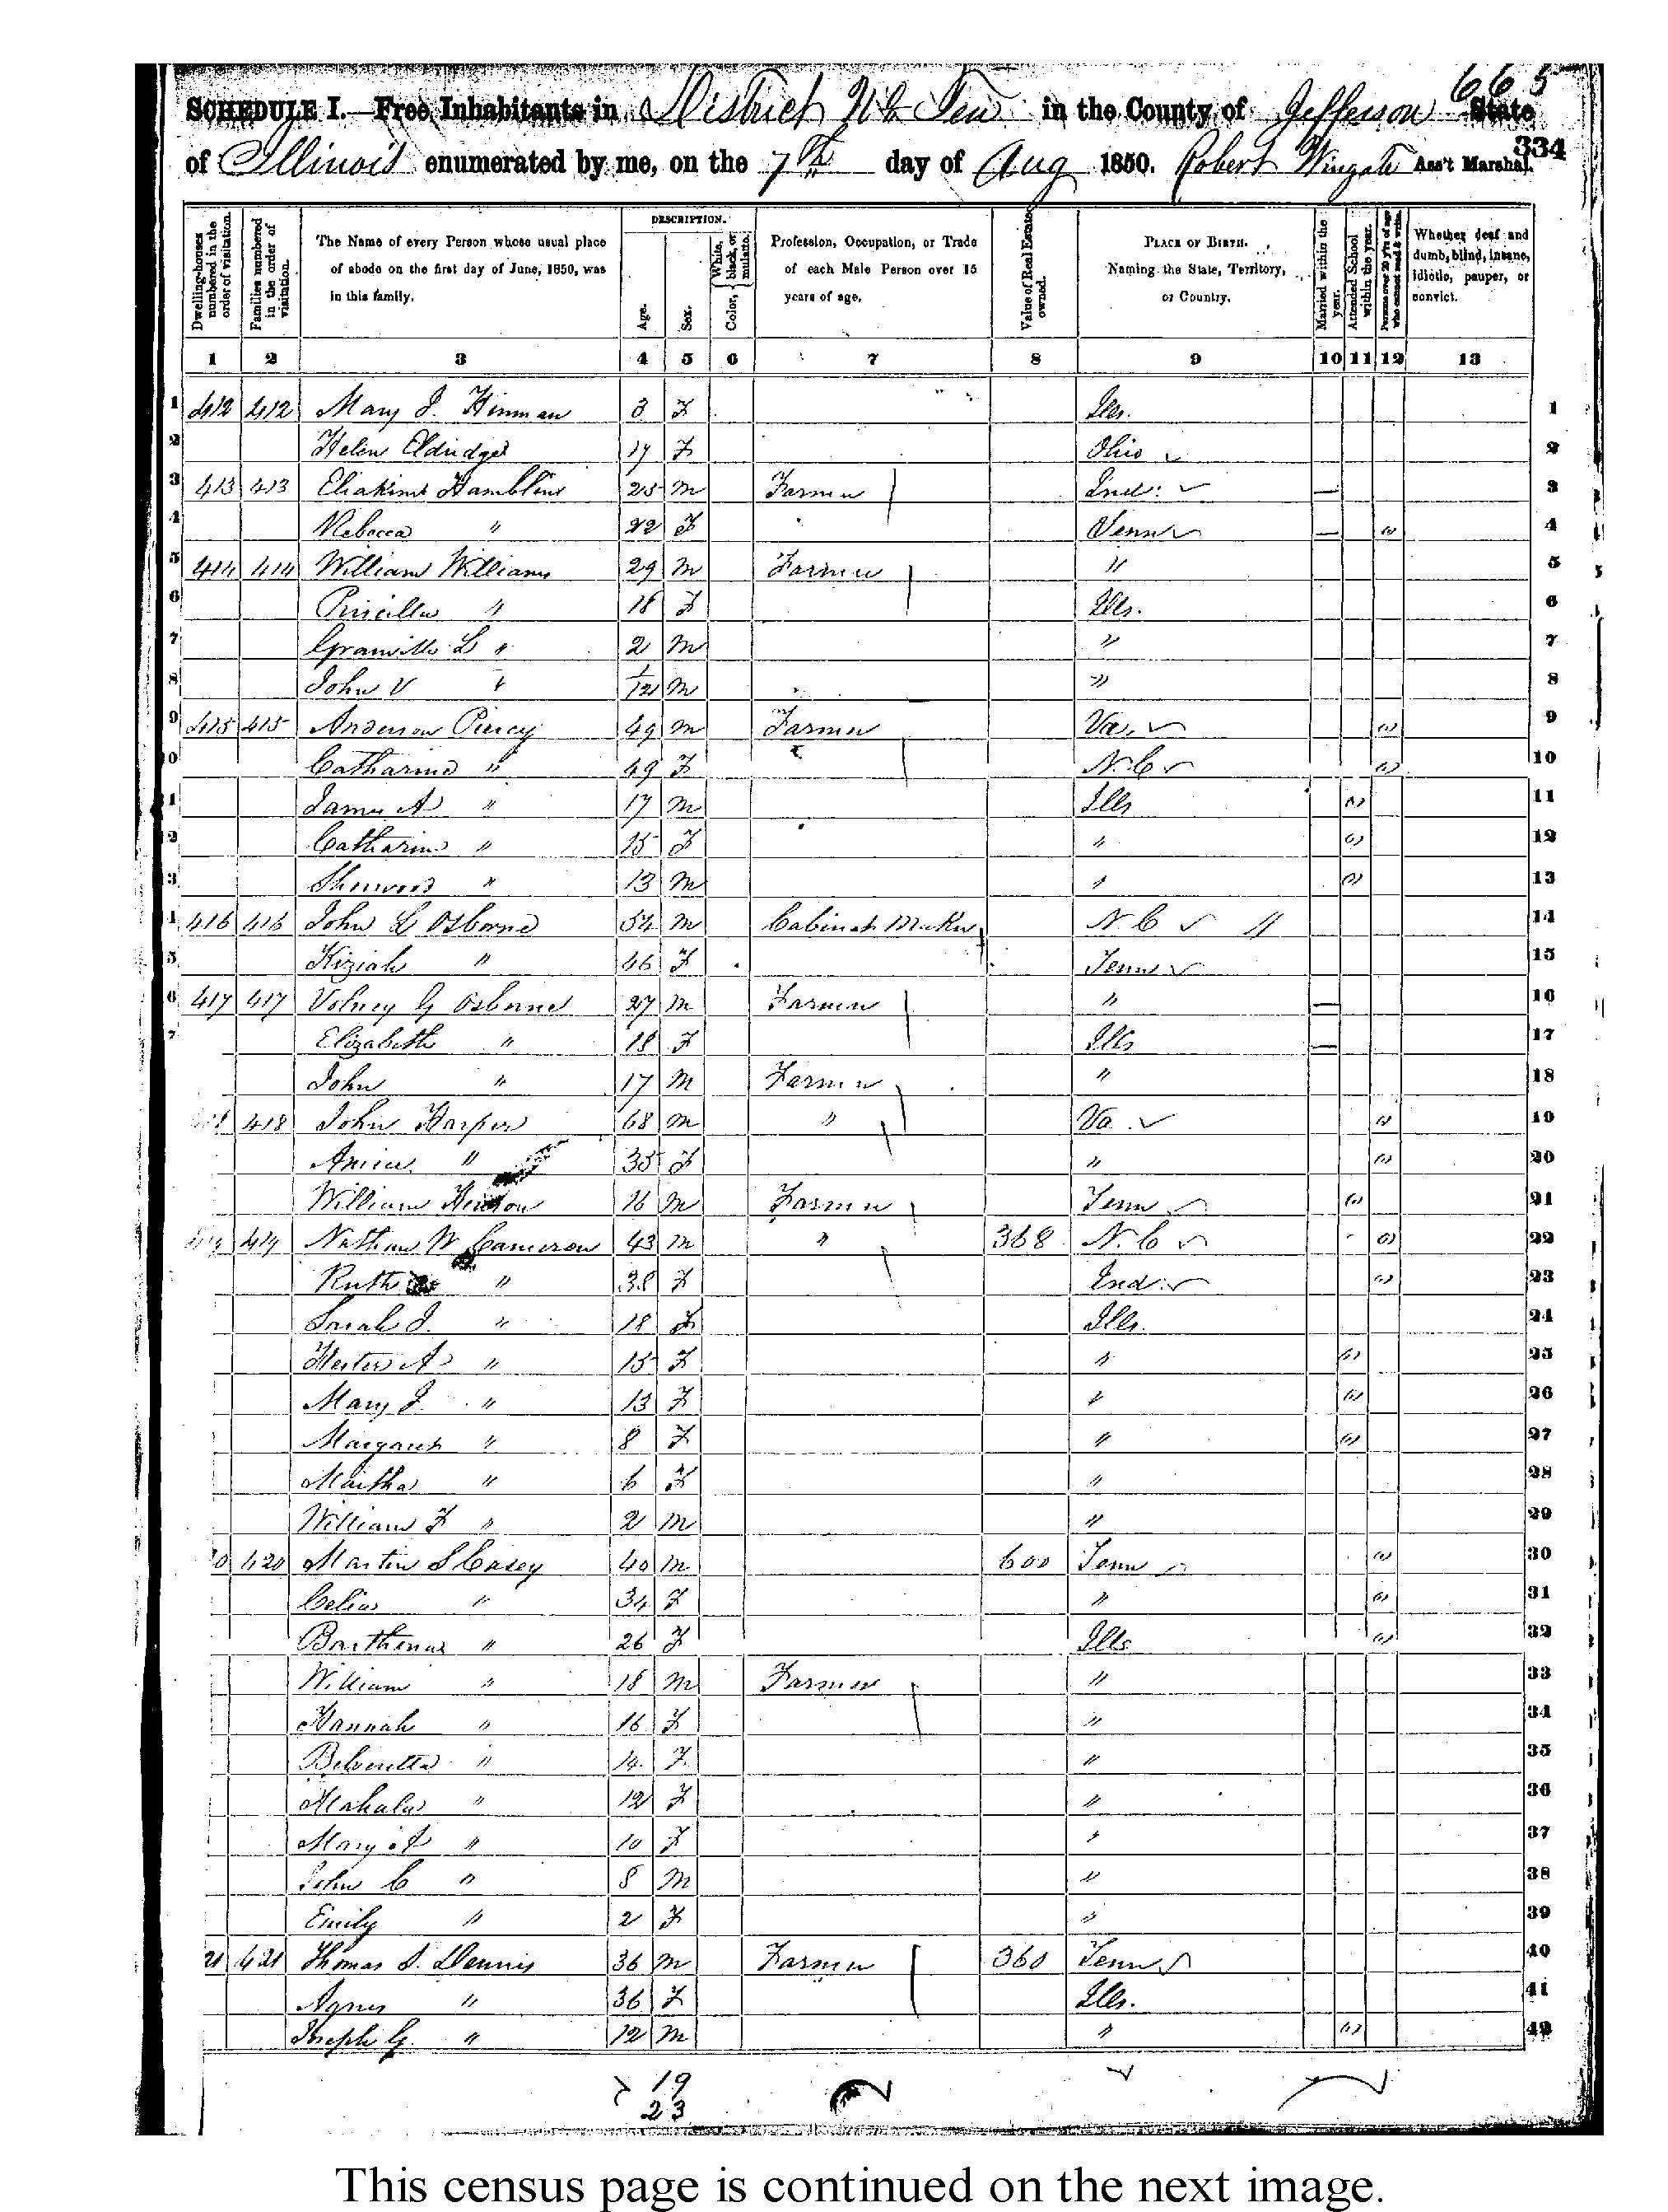 665
SCHEDULE I.—Free Inhabitants in District No Ten in the County of Jefferson State
334
of Illinois enumerated by me, on the 7th day of Aug 1850. Robert Wingate Ass't Marshal.
Dwelling-houses numbered in the order of visitation. Families numbered in the order of visitation. The Name of every Person whose usual place of abode on the first day of June, 1850, was in this family. DESCRIPTION. Age. Sex. Color, White, black, or mulatto. Profession, Occupation, or Trade of each Male Person over 15 years of age. Value of Real Estate owned. PLACE OF BIRTH. Naming the State, Territory, or Country. Married within the year. Attended School within the year. Persons over 20 y'rs of age who cannot read & write. Whether deaf and dumb, blind, insane, idiotic, pauper, or convict.
1 2 3 4 5 6 7 8 9 10 11 12 13
1 412 412 Mary J. Hinman 3 F Ills. 1
2 Helen Eldridge 17 F Ohio 2
3 413 413 Eliakim Hamblin 25 M Farmer Ind. — 3
4 Rebecca " 22 F Tenn — (1) 4
5 414 414 William Williams 29 M Farmer " 5
6 Pricilla " 18 F Ills. 6
7 Granville L " 2 M " 7
8 John V " 1/12 M " 8
9 415 415 Anderson Piercy 49 M Farmer Va. (1) 9
0 Catharine " 49 F N.C (1) 10
1 James A " 17 M Ills (1) 11
2 Catharine " 15 F " (1) 12
3 Sherwood " 13 M " (1) 13
4 416 416 John L Osborne 54 M Cabinet Maker N.C " 14
5 Kiziah " 46 F Tenn 15
6 417 417 Volney G Osborne 27 M Farmer " — 16
7 Elizabeth " 18 F Ills — 17
John " 17 M Farmer " 18
418 John Harper 68 M " Va (1) 19
" 35 F " (1) 20
William 16 M Farmer Tenn (1) 21
419 Nathan W Cameron 43 M " 368 N.C (1) 22
Ruth " 38 F Ind. (1) 23
Sarah J. " 18 F Ills. 24
Hester A " 15 F " (1) 25
Mary J. " 13 F " (1) 26
Margaret " 8 F " (1) 27
Martha " 6 F " 28
William F " 2 M " 29
0 420 Martin S Casey 40 M 600 Tenn (1) 30
Celia " 34 F " (1) 31
Barthena " 26 F Ills (1) 32
William " 18 M Farmer " 33
Hannah " 16 F " 34
Belveretta " 14 F " 35
Mahala " 12 F " 36
Mary A " 10 F " 37
John C " 8 M " 38
Emily " 2 F " 39
21 421 Thomas S. Dennis 36 M Farmer 360 Tenn 40
Agnes " 36 F Ills. 41
Joseph G. " 12 M " (1) 42
19
23
This census page is continued on the next image.